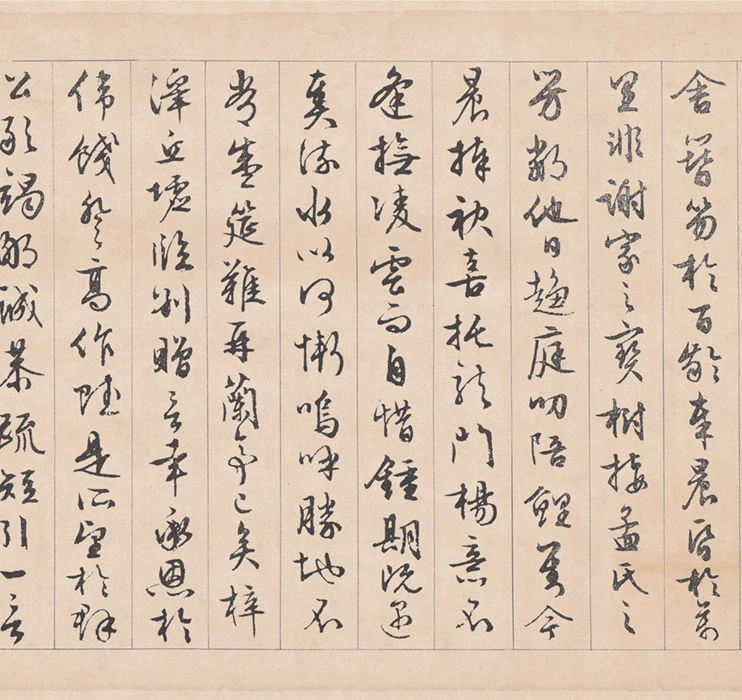 舍簪笏於百齡奉晨昏於萬
里非謝家之寶樹接孟氏之
芳鄰他日趨庭叨陪鯉對今
晨捧袂喜托龍門楊意不
逢撫凌雲而自惜鍾期既遇
奏流水以何慚嗚呼勝地不
常盛筵難再蘭亭已矣梓
澤丘墟臨別贈言幸承恩於
偉餞登高作賦是所望於群
公敢竭鄙誠恭疏短引一言